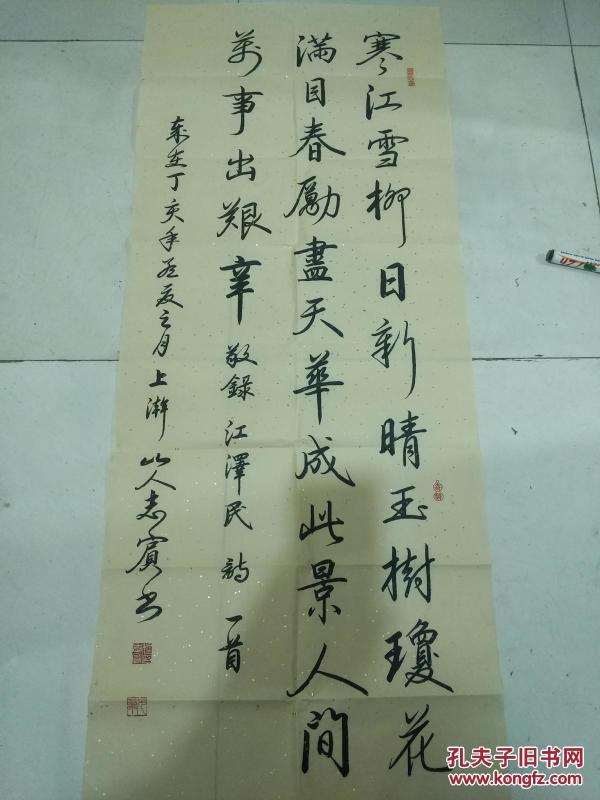 寒江雪柳日新晴玉樹瓊花
滿目春勵盡天華成此景人間
萬事出艱辛 敬錄江澤民詩一首
歲在丁亥年孟夏之月上澣 山人志賓书
孔夫子旧书网
www.kongfz.com